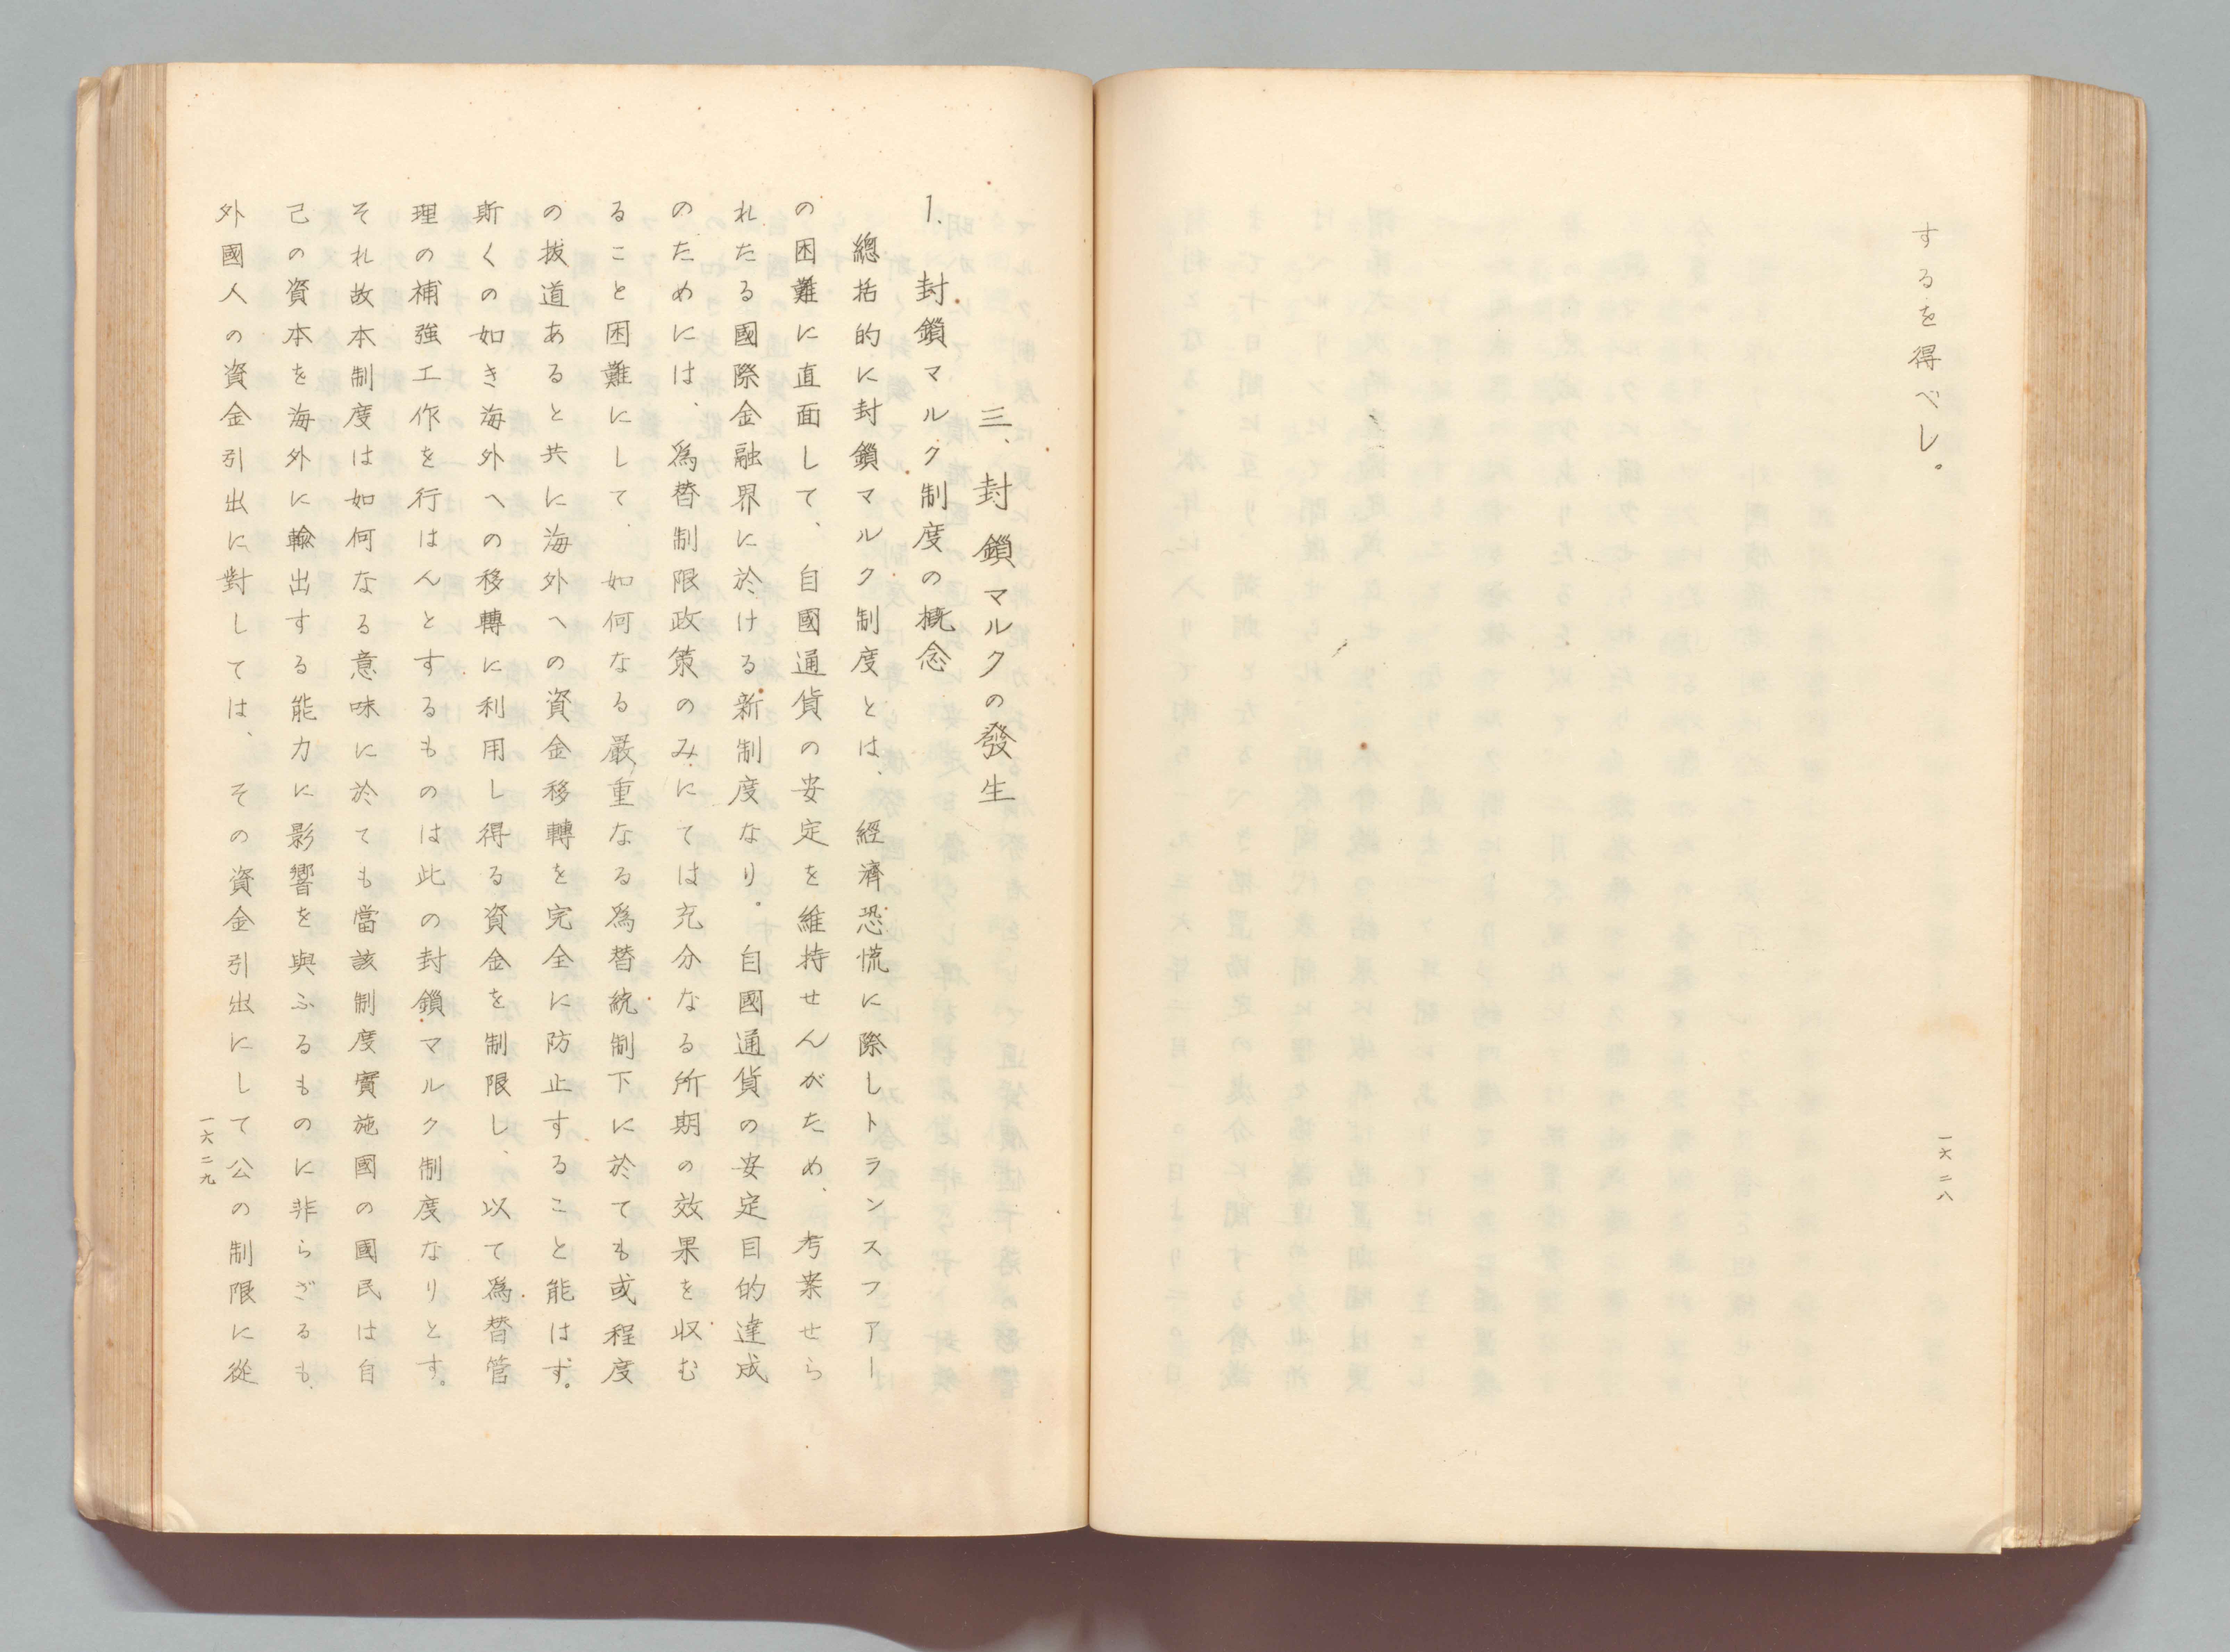 するを得べし。
一六二八
三、封鎖マルクの發生
1. 封鎖マルク制度の概念
總括的に封鎖マルク制度とは、經濟恐慌に際しトランスフアー
の困難に直面して、自國通貨の安定を維持せんがため、考案せら
れたる國際金融界に於ける新制度なり。自國通貨の安定目的達成
のためには、爲替制限政策のみにては充分なる所期の效果を収む
ること困難にして、如何なる嚴重なる爲替統制下に於ても或程度
の拔道あると共に海外への資金移轉を完全に防止すること能はず。
斯くの如き海外への移轉に利用し得る資金を制限し、以て爲替管
理の補強工作を行はんとするものは此の封鎖マルク制度なりとす。
それ故本制度は如何なる意味に於ても當該制度實施國の國民は自
己の資本を海外に輸出する能力に影響を與ふるものに非らざるも、
外國人の資金引出に對しては、その資金引出にして公の制限に從
一六二九